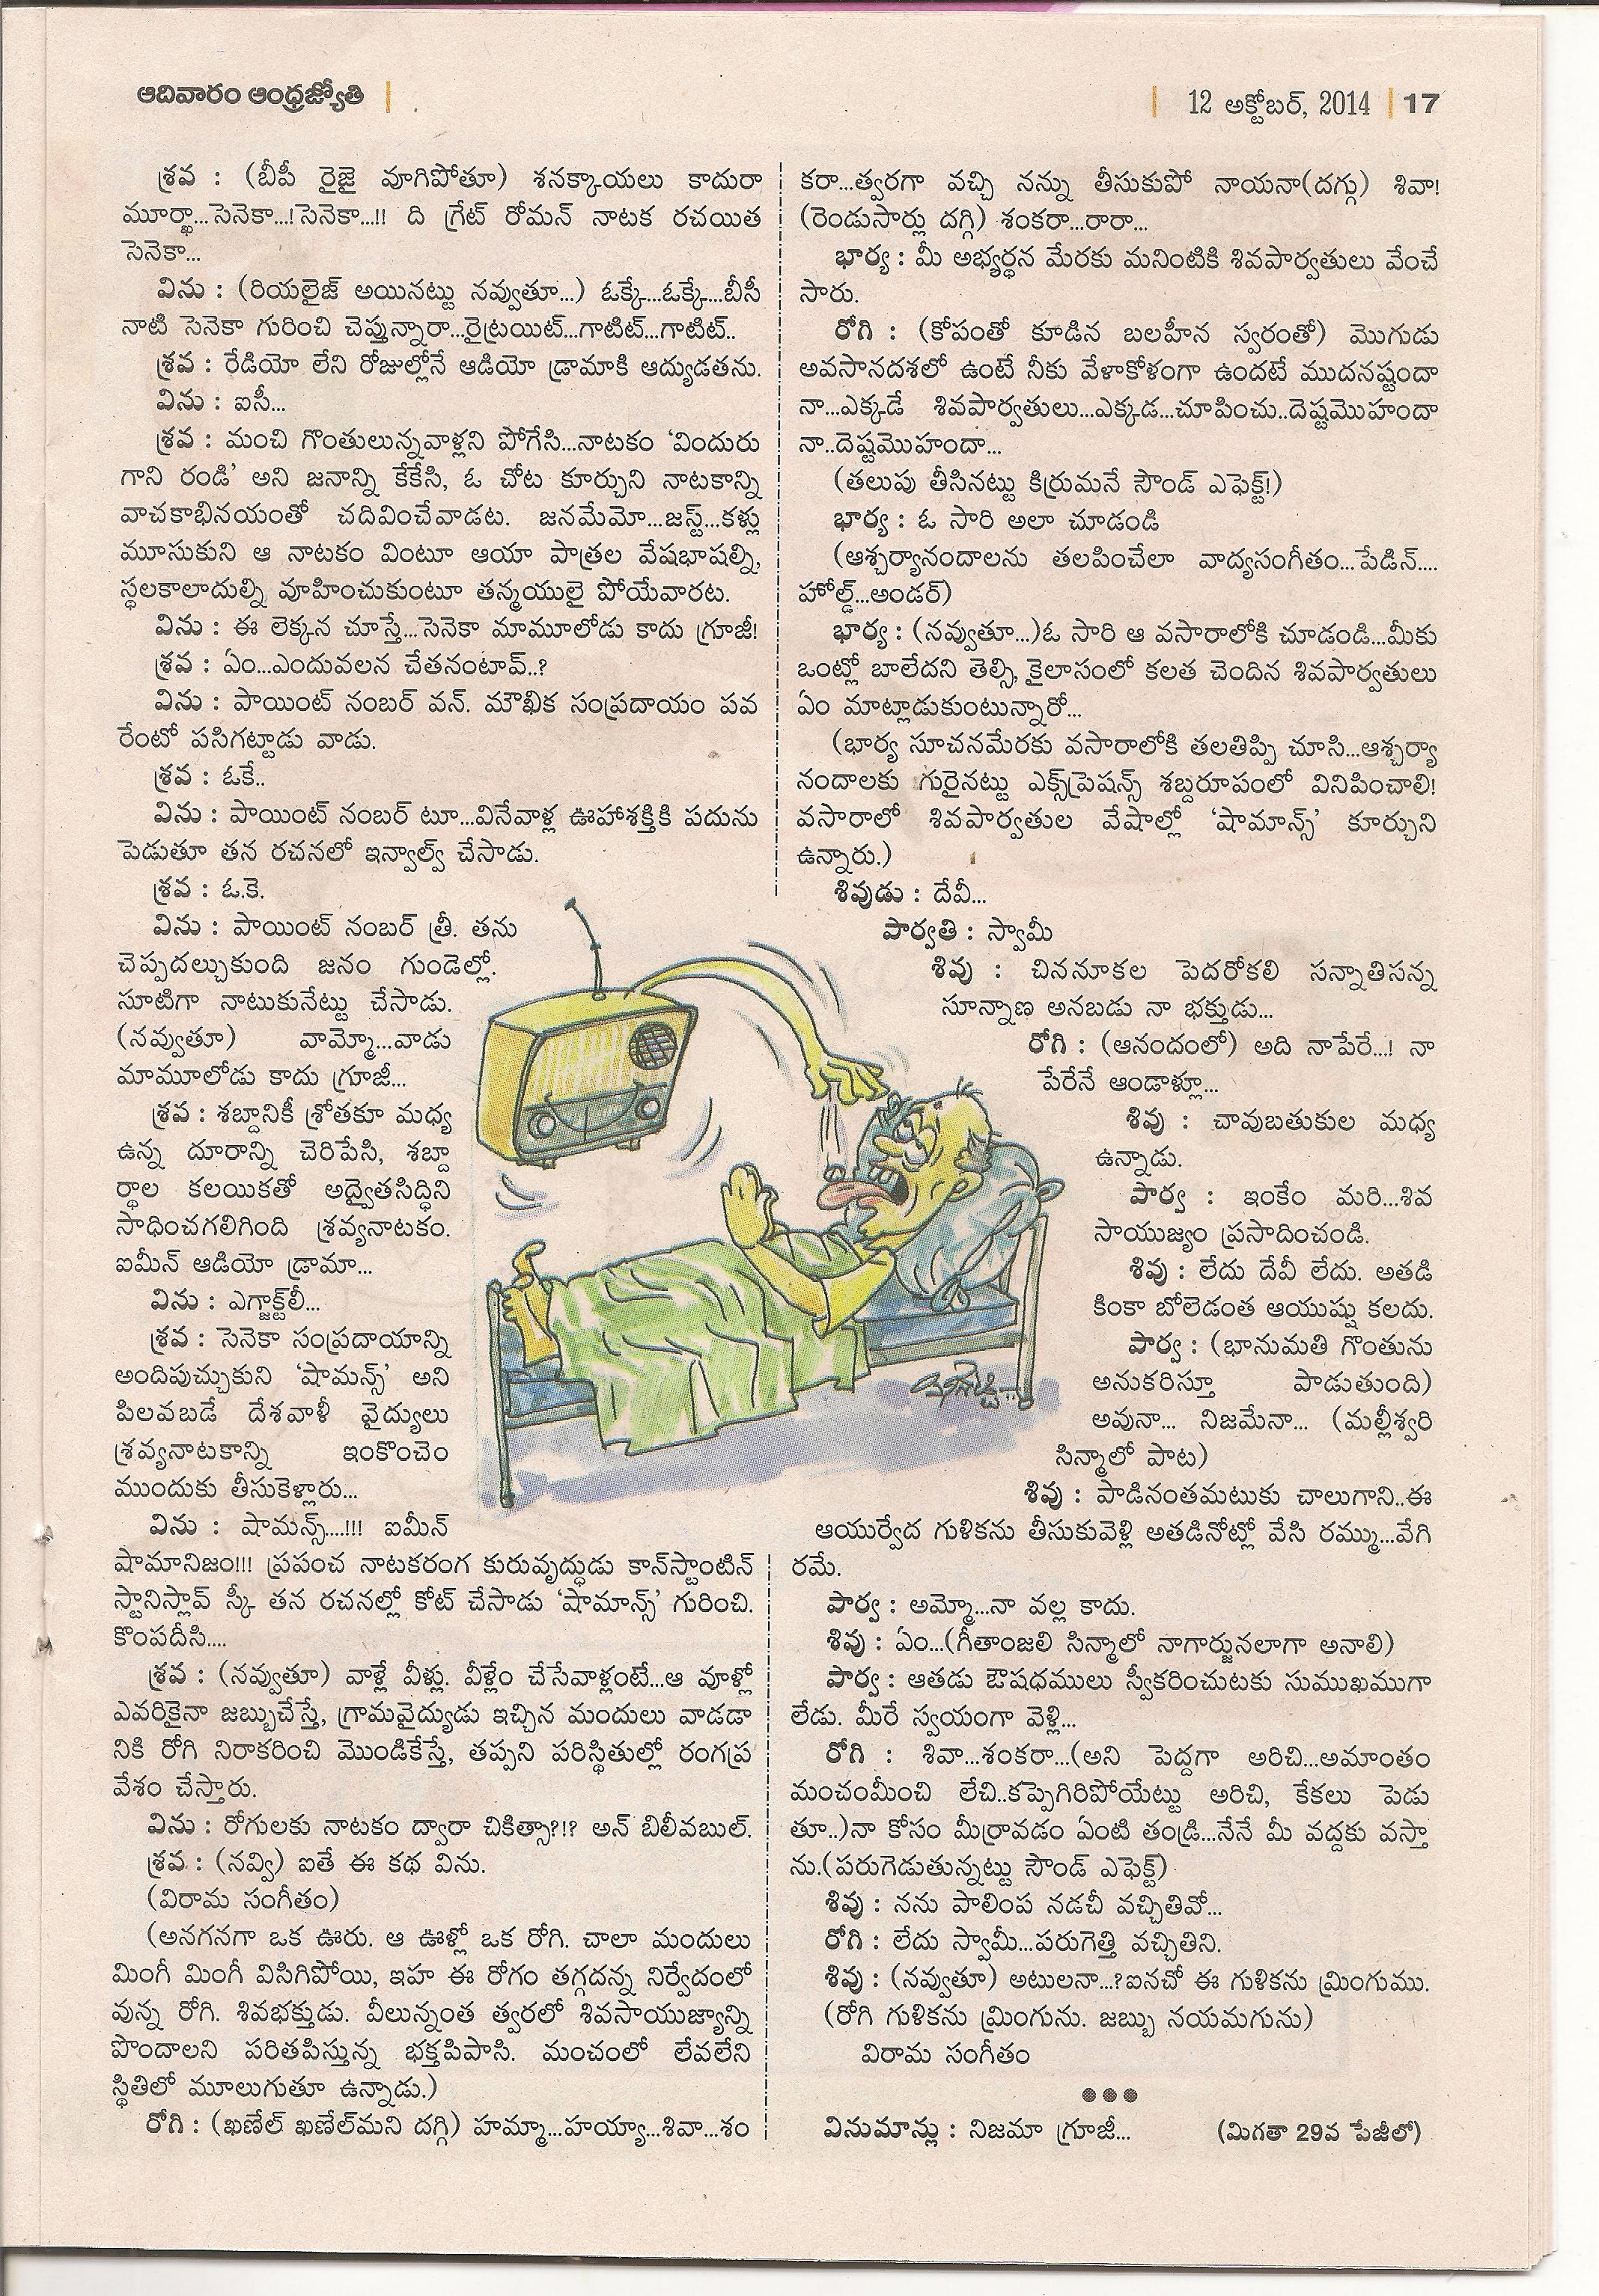 ఆదివారం ఆంధ్రజ్యోతి
12 అక్టోబర్, 2014 17
శ్రవ : (బీపీ రైజై వూగిపోతూ) శనక్కాయలు కాదురా
మూర్ఖా...సెనెకా...!సెనెకా...!! ది గ్రేట్ రోమన్ నాటక రచయిత
సెనెకా...
విను : (రియలైజ్ అయినట్టు నవ్వుతూ...) ఓక్కే...ఓక్కే...బీసీ
నాటి సెనెకా గురించి చెప్తున్నారా...రైట్రయిట్...గాటిట్...గాటిట్..
శ్రవ : రేడియో లేని రోజుల్లోనే ఆడియో డ్రామాకి ఆద్యుడతను.
విను : ఐసీ...
శ్రవ : మంచి గొంతులున్నవాళ్లని పోగేసి...నాటకం ‘విందురు
గాని రండి’ అని జనాన్ని కేకేసి, ఓ చోట కూర్చుని నాటకాన్ని
వాచకాభినయంతో చదివించేవాడట. జనమేమో...జస్ట్...కళ్లు
మూసుకుని ఆ నాటకం వింటూ ఆయా పాత్రల వేషభాషల్ని,
స్థలకాలాదుల్ని వూహించుకుంటూ తన్మయులై పోయేవారట.
విను : ఈ లెక్కన చూస్తే...సెనెకా మామూలోడు కాదు గ్రూజీ!
శ్రవ : ఏం...ఎందువలన చేతనంటావ్..?
విను : పాయింట్ నంబర్ వన్. మౌఖిక సంప్రదాయం పవ
రేంటో పసిగట్టాడు వాడు.
శ్రవ : ఓకే..
విను : పాయింట్ నంబర్ టూ...వినేవాళ్ల ఊహాశక్తికి పదును
పెడుతూ తన రచనలో ఇన్వాల్వ్ చేసాడు.
శ్రవ : ఓ.కె.
విను : పాయింట్ నంబర్ త్రీ. తను
చెప్పదల్చుకుంది జనం గుండెల్లో.
సూటిగా నాటుకునేట్టు చేసాడు.
(నవ్వుతూ) వామ్మో...వాడు
మామూలోడు కాదు గ్రూజీ...
శ్రవ : శబ్దానికీ శ్రోతకూ మధ్య
ఉన్న దూరాన్ని చెరిపేసి, శబ్దా
ర్థాల కలయికతో అద్వైతసిద్ధిని
సాధించగలిగింది శ్రవ్యనాటకం.
ఐమీన్ ఆడియో డ్రామా...
విను : ఎగ్జాక్ట్‌లీ...
శ్రవ : సెనెకా సంప్రదాయాన్ని
అందిపుచ్చుకుని ‘షామన్స్’ అని
పిలవబడే దేశవాళీ వైద్యులు
శ్రవ్యనాటకాన్ని ఇంకొంచెం
ముందుకు తీసుకెళ్లారు...
విను : షామన్స్....!!! ఐమీన్
షామానిజం!!! ప్రపంచ నాటకరంగ కురువృద్ధుడు కాన్‌స్టాంటిన్
స్టానిస్లావ్ స్కీ తన రచనల్లో కోట్ చేసాడు ‘షామాన్స్’ గురించి.
కొంపదీసి....
శ్రవ : (నవ్వుతూ) వాళ్లే వీళ్లు. వీళ్లేం చేసేవాళ్లంటే...ఆ వూళ్లో
ఎవరికైనా జబ్బుచేస్తే, గ్రామవైద్యుడు ఇచ్చిన మందులు వాడడా
నికి రోగి నిరాకరించి మొండికేస్తే, తప్పని పరిస్థితుల్లో రంగప్ర
వేశం చేస్తారు.
విను : రోగులకు నాటకం ద్వారా చికిత్సా?!? అన్ బిలీవబుల్.
శ్రవ : (నవ్వి) ఐతే ఈ కథ విను.
(విరామ సంగీతం)
(అనగనగా ఒక ఊరు. ఆ ఊళ్లో ఒక రోగి. చాలా మందులు
మింగీ మింగీ విసిగిపోయి, ఇహ ఈ రోగం తగ్గదన్న నిర్వేదంలో
వున్న రోగి. శివభక్తుడు. వీలున్నంత త్వరలో శివసాయుజ్యాన్ని
పొందాలని పరితపిస్తున్న భక్తపిపాసి. మంచంలో లేవలేని
స్థితిలో మూలుగుతూ ఉన్నాడు.)
రోగి : (ఖణేల్ ఖణేల్‌మని దగ్గి) హమ్మా...హయ్యా...శివా...శం
కరా...త్వరగా వచ్చి నన్ను తీసుకుపో నాయనా(దగ్గు) శివా!
(రెండుసార్లు దగ్గి) శంకరా...రారా...
భార్య : మీ అభ్యర్థన మేరకు మనింటికి శివపార్వతులు వేంచే
సారు.
రోగి : (కోపంతో కూడిన బలహీన స్వరంతో) మొగుడు
అవసానదశలో ఉంటే నీకు వేళాకోళంగా ఉందటే ముదనష్టందా
నా...ఎక్కడే శివపార్వతులు...ఎక్కడ...చూపించు..దెష్టమొహందా
నా..దెష్టమొహందా...
(తలుపు తీసినట్టు కిర్రుమనే సౌండ్ ఎఫెక్ట్!)
భార్య : ఓ సారి అలా చూడండి
(ఆశ్చర్యానందాలను తలపించేలా వాద్యసంగీతం...పేడిన్....
హోల్డ్...అండర్)
భార్య : (నవ్వుతూ...)ఓ సారి ఆ వసారాలోకి చూడండి...మీకు
ఒంట్లో బాలేదని తెల్సి, కైలాసంలో కలత చెందిన శివపార్వతులు
ఏం మాట్లాడుకుంటున్నారో...
(భార్య సూచనమేరకు వసారాలోకి తలతిప్పి చూసి...ఆశ్చర్యా
నందాలకు గురైనట్టు ఎక్స్‌ప్రెషన్స్ శబ్దరూపంలో వినిపించాలి!
వసారాలో శివపార్వతుల వేషాల్లో ‘షామాన్స్’ కూర్చుని
ఉన్నారు.)
శివుడు : దేవీ...
పార్వతి : స్వామీ
శివు : చిననూకల పెదరోకలి సన్నాతిసన్న
సూన్నాణ అనబడు నా భక్తుడు...
రోగి : (ఆనందంలో) అది నాపేరే...! నా
పేరేనే ఆండాళ్లూ...
శివు : చావుబతుకుల మధ్య
ఉన్నాడు.
పార్వ : ఇంకేం మరి...శివ
సాయుజ్యం ప్రసాదించండి.
శివు : లేదు దేవీ లేదు. అతడి
కింకా బోలెడంత ఆయుష్షు కలదు.
పార్వ : (భానుమతి గొంతును
అనుకరిస్తూ పాడుతుంది)
అవునా... నిజమేనా... (మల్లీశ్వరి
సిన్మాలో పాట)
శివు : పాడినంతమటుకు చాలుగాని..ఈ
ఆయుర్వేద గుళికను తీసుకువెళ్లి అతడినోట్లో వేసి రమ్ము...వేగి
రమే.
పార్వ : అమ్మో...నా వల్ల కాదు.
శివు : ఏం...(గీతాంజలి సిన్మాలో నాగార్జునలాగా అనాలి)
పార్వ : ఆతడు ఔషధములు స్వీకరించుటకు సుముఖముగా
లేడు. మీరే స్వయంగా వెళ్లి...
రోగి : శివా...శంకరా...(అని పెద్దగా అరిచి...అమాంతం
మంచంమీంచి లేచి..కప్పెగిరిపోయేట్టు అరిచి, కేకలు పెడు
తూ..)నా కోసం మీర్రావడం ఏంటి తండ్రి...నేనే మీ వద్దకు వస్తా
ను.(పరుగెడుతున్నట్టు సౌండ్ ఎఫెక్ట్)
శివు : నను పాలింప నడచీ వచ్చితివో...
రోగి : లేదు స్వామీ...పరుగెత్తి వచ్చితిని.
శివు : (నవ్వుతూ) అటులనా...?ఐనచో ఈ గుళికను మ్రింగుము.
(రోగి గుళికను మ్రింగును. జబ్బు నయమగును)
విరామ సంగీతం
●●●
వినుమాన్లు : నిజమా గ్రూజీ...
(మిగతా 29వ పేజీలో)